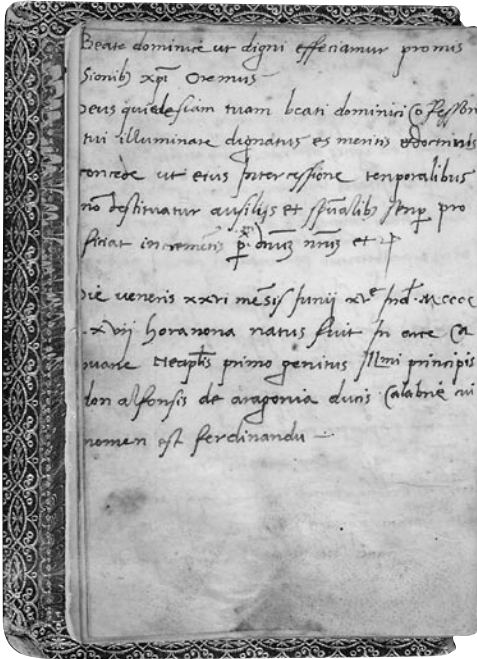 Beate dominice ut digni efficiamur promis
sionib9 xpi Oremus
Deus qui ecclesiam tuam beati dominici Cõfessoris
tui illuminare dignatus es meritis et doctrinis
concede ut eius Intercessione temporalibus
nõ destituatur auxilijs et spũalib9 semp pro
ficiat incremẽtis p. dñum nrũm et
Die veneris xxvi mẽsis Junij xve Ind. Mcccc
xvij hora nona natus fuit In arce Ca
puane Neaplis primo genitus Illmi principis
don alfonsis de aragonia ducis Calabrie cui
nomen est ferdinandu